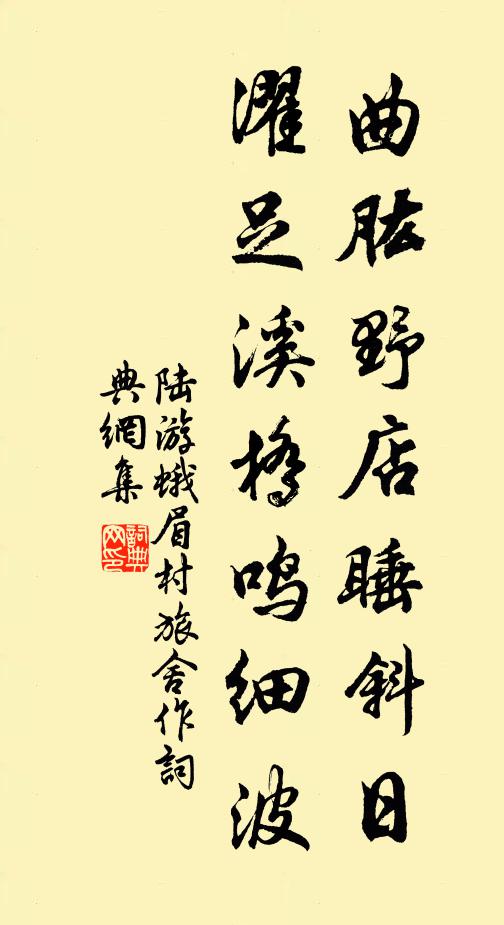 曲肱野店睡斜日
濯足溪桥鸣细波
陆游蛾眉村旅舍作詞
典網集
詞典
网印